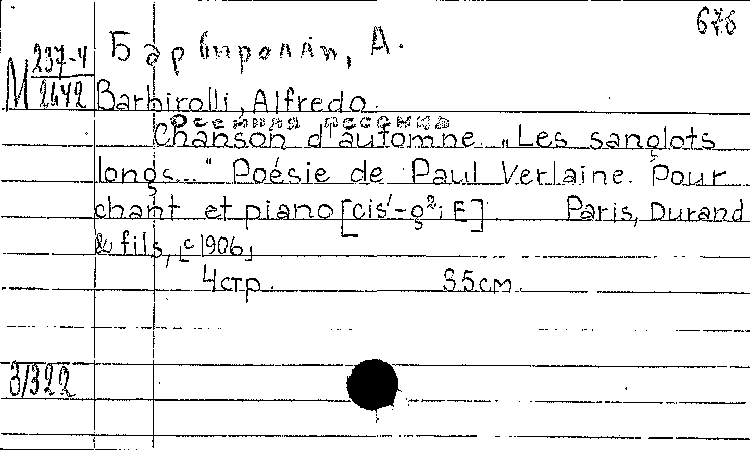 676
Барбиролли, А.
М 237-4
2642
Barbirolli, Alfredo.
Осенняя песенка
Chanson d'automne. „Les sanglots
longs..." Poésie de Paul Verlaine. Pour
chant et piano [cis'-g²; E] Paris, Durand
& fils, [c 1906]
4 стр. 35 см.
3/322